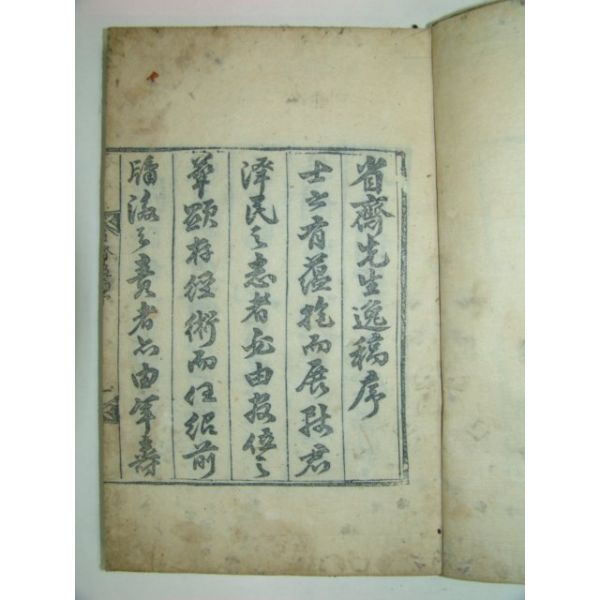 省齋先生逸稿序
士之有蘊抱而展致君
澤民之志者必由發位之
華顯存經術而任紹前
牖後之責者亦由年壽